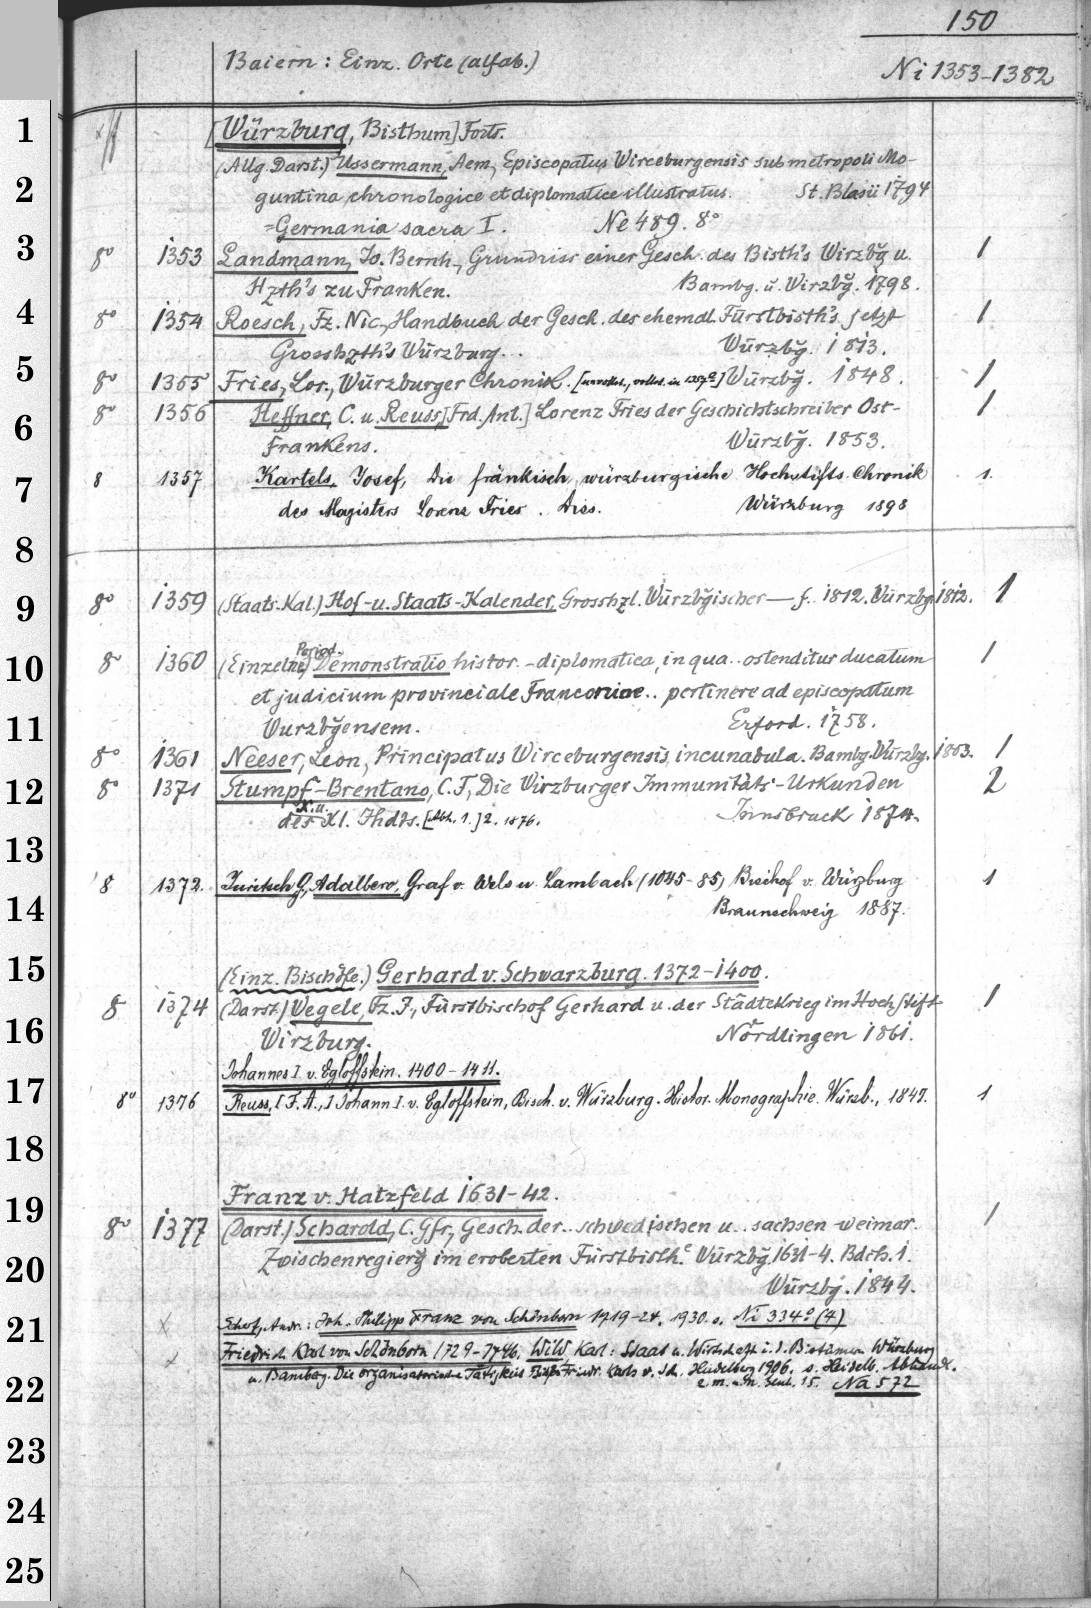 150
Baiern: Einz. Orte (alfab.)
Ni 1353-1382
1
[Würzburg, Bisthum] Forts.
(Allg. Darst.) Ussermann, Aem., Episcopatus Wirceburgensis sub metropoli Mo-
2
guntina chronologice et diplomatice illustratus. St. Blasii 1794
=Germania sacra I. Ne 489. 8°
3
8° 1353 Landmann, Jo. Bernh., Grundriss einer Gesch. des Bisth's Wirzbg u. 1
Hzth's zu Franken. Bambg. u. Wirzbg. 1798.
4
8° 1354 Roesch, Fz. Nic., Handbuch der Gesch. des ehemal. Fürstbisth's jetzt 1
Grosshzth's Würzburg.. Würzbg. 1813.
5
8° 1355 Fries, Lor., Würzburger Chronik. Würzbg. 1848. 1
8° 1356 Heffner, C. u. Reuss, [Frd. Ant.] Lorenz Fries der Geschichtschreiber Ost- 1
6
frankens. Würzbg. 1853.
8 1357 Kartels, Josef, Die fränkisch würzburgische Hochstifts Chronik 1.
7
des Magisters Lorenz Fries. Diss. Würzburg 1898
8
9
8° 1359 (Staats-Kal.) Hof-u. Staats-Kalender, Grosshzl. Würzbgischer — f. 1812. Würzbg. 1812. 1
Period.
10
8° 1360 (Einzelne) Demonstratio histor.-diplomatica, in qua.. ostenditur ducatum 1
et judicium provinciale Franconiae.. pertinere ad episcopatum
11
Wurzbgensem. Erford. 1758.
8° 1361 Neeser, Leon, Principatus Wirceburgensis incunabula. Bambg. Würzbg. 1803. 1
12
8° 1371 Stumpf-Brentano, C. F., Die Wirzburger Immunitäts-Urkunden 2
X. u.
des XI. Jhdts. [Abt. 1.] 2. 1876. Innsbruck 1874.
13
8 1372. Juritsch G., Adalbero, Graf v. Wels u. Lambach (1045-85) Bischof v. Würzburg 1
14
Braunschweig 1887.
15
(Einz. Bischöfe.) Gerhard v. Schwarzburg. 1372-1400.
8° 1374 (Darst.) Wegele, Fz. X., Fürstbischof Gerhard u. der Städtekrieg im Hochstift 1
16
Wirzburg. Nördlingen 1861.
Johannes I. v. Egloffstein. 1400-1411.
17
8° 1376 Reuss, [F. A.,] Johann I. v. Egloffstein, Bisch. v. Würzburg. Histor. Monographie. Würzb., 1847. 1
18
Franz v. Hatzfeld 1631-42.
19
8° 1377 (Darst.) Scharold, C. Gfr., Gesch. der.. schwedischen u.. sachsen-weimar. 1
20
Zwischenregierg im eroberten Fürstbisth. Würzbg. 1631-4. Bdch. 1.
Würzbg. 1844.
21
Scherf, Andr.: Joh. Philipp Franz von Schönborn 1719-24. 1930. s. Ni 334° (4)
Friedrich Karl von Schönborn 1729-1746. Wild Karl: Staat u. Wirtschaft i. d. Bistümern Würzburg
22
u. Bamberg. Die organisatorische Tätigkeit Bischofs Friedr. Karls v. Sch. Heidelberg 1906. s. Heidelb. Abhandl.
z. m. u. n. Gesch. 15. Na 572
23
24
25